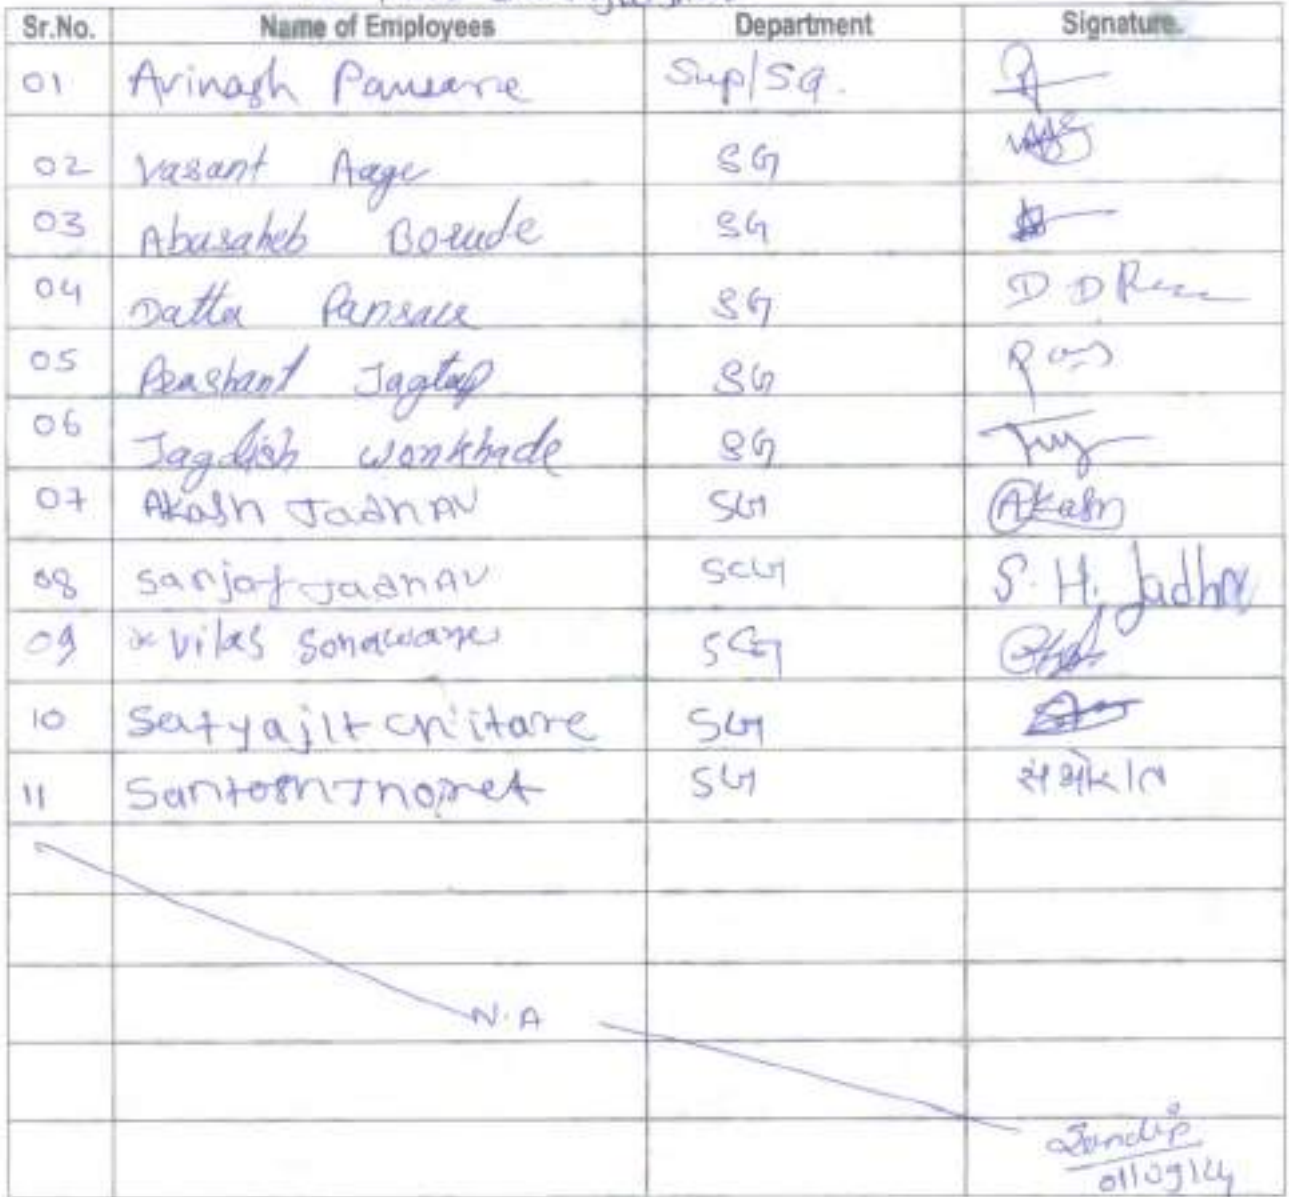 Sr.No. Name of Employees Department Signature.
01 Avinash Pansare Sup/SG.
02 Vasant Aage SG
03 Abasaheb Borude SG
04 Datta Pansare SG D D
05 Prashant Jagtap SG
06 Jagdish Wonkhade SG
07 Akash Jadhav SG Akash
08 Sanjay Jadhav SG S. H. Jadhav
09 Vilas Sonawane SG
10 Satyajit Chitare SG
11 Santosh SG
N.A
Sandip
01/09/24